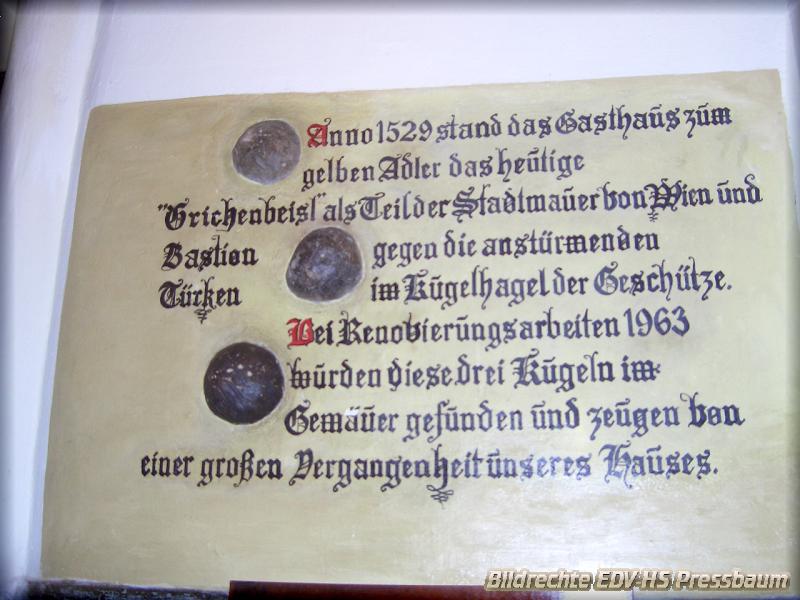 Anno 1529 stand das Gasthaus zum
gelben Adler das heutige
"Grichenbeisl" als Teil der Stadtmauer von Wien und
Bastion gegen die anstürmenden
Türken im Kugelhagel der Geschütze.
Bei Renovierungsarbeiten 1963
wurden diese drei Kugeln im
Gemäuer gefunden und zeugen von
einer großen Vergangenheit unseres Hauses.
Bildrechte EDV-HS Pressbaum